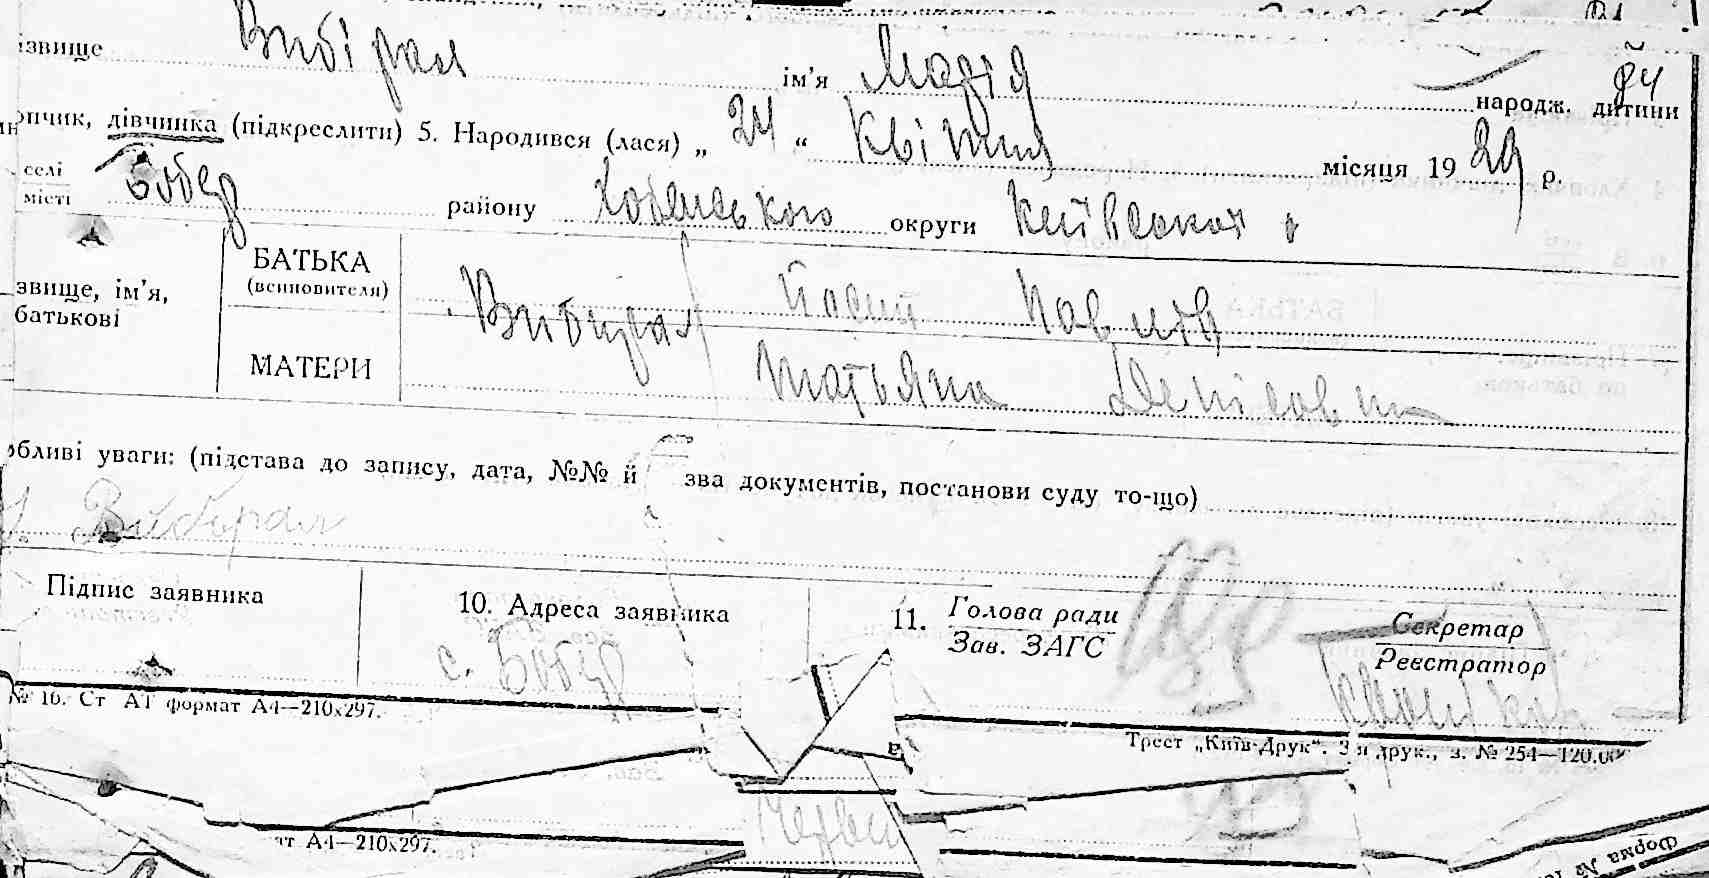 ізвище Вибірал ім'я Марія народж. дитини 84
опчик, дівчинка (підкреслити) 5. Народився (лася) „ 24 “ Квітня місяця 1929 р.
селі
місті Бобер району Хабенського округи Київської
звище, ім'я,
батькові
БАТЬКА
(всиновителя)
Вибирал Йосип Павлів
МАТЕРИ
Татьяна Денісовн
обливі уваги: (підстава до запису, дата, №№ й зва документів, постанови суду то-що)
Виберал
Підпис заявника
10. Адреса заявника
с. Бобер
11. Голова ради
Зав. ЗАГС
Секретар
Реєстратор
№ 16. Ст АТ формат А4—210x297.
Трест „Київ-Друк“. 3 я друк., з. № 254—120.00
ат А4—210x297.
Форма №